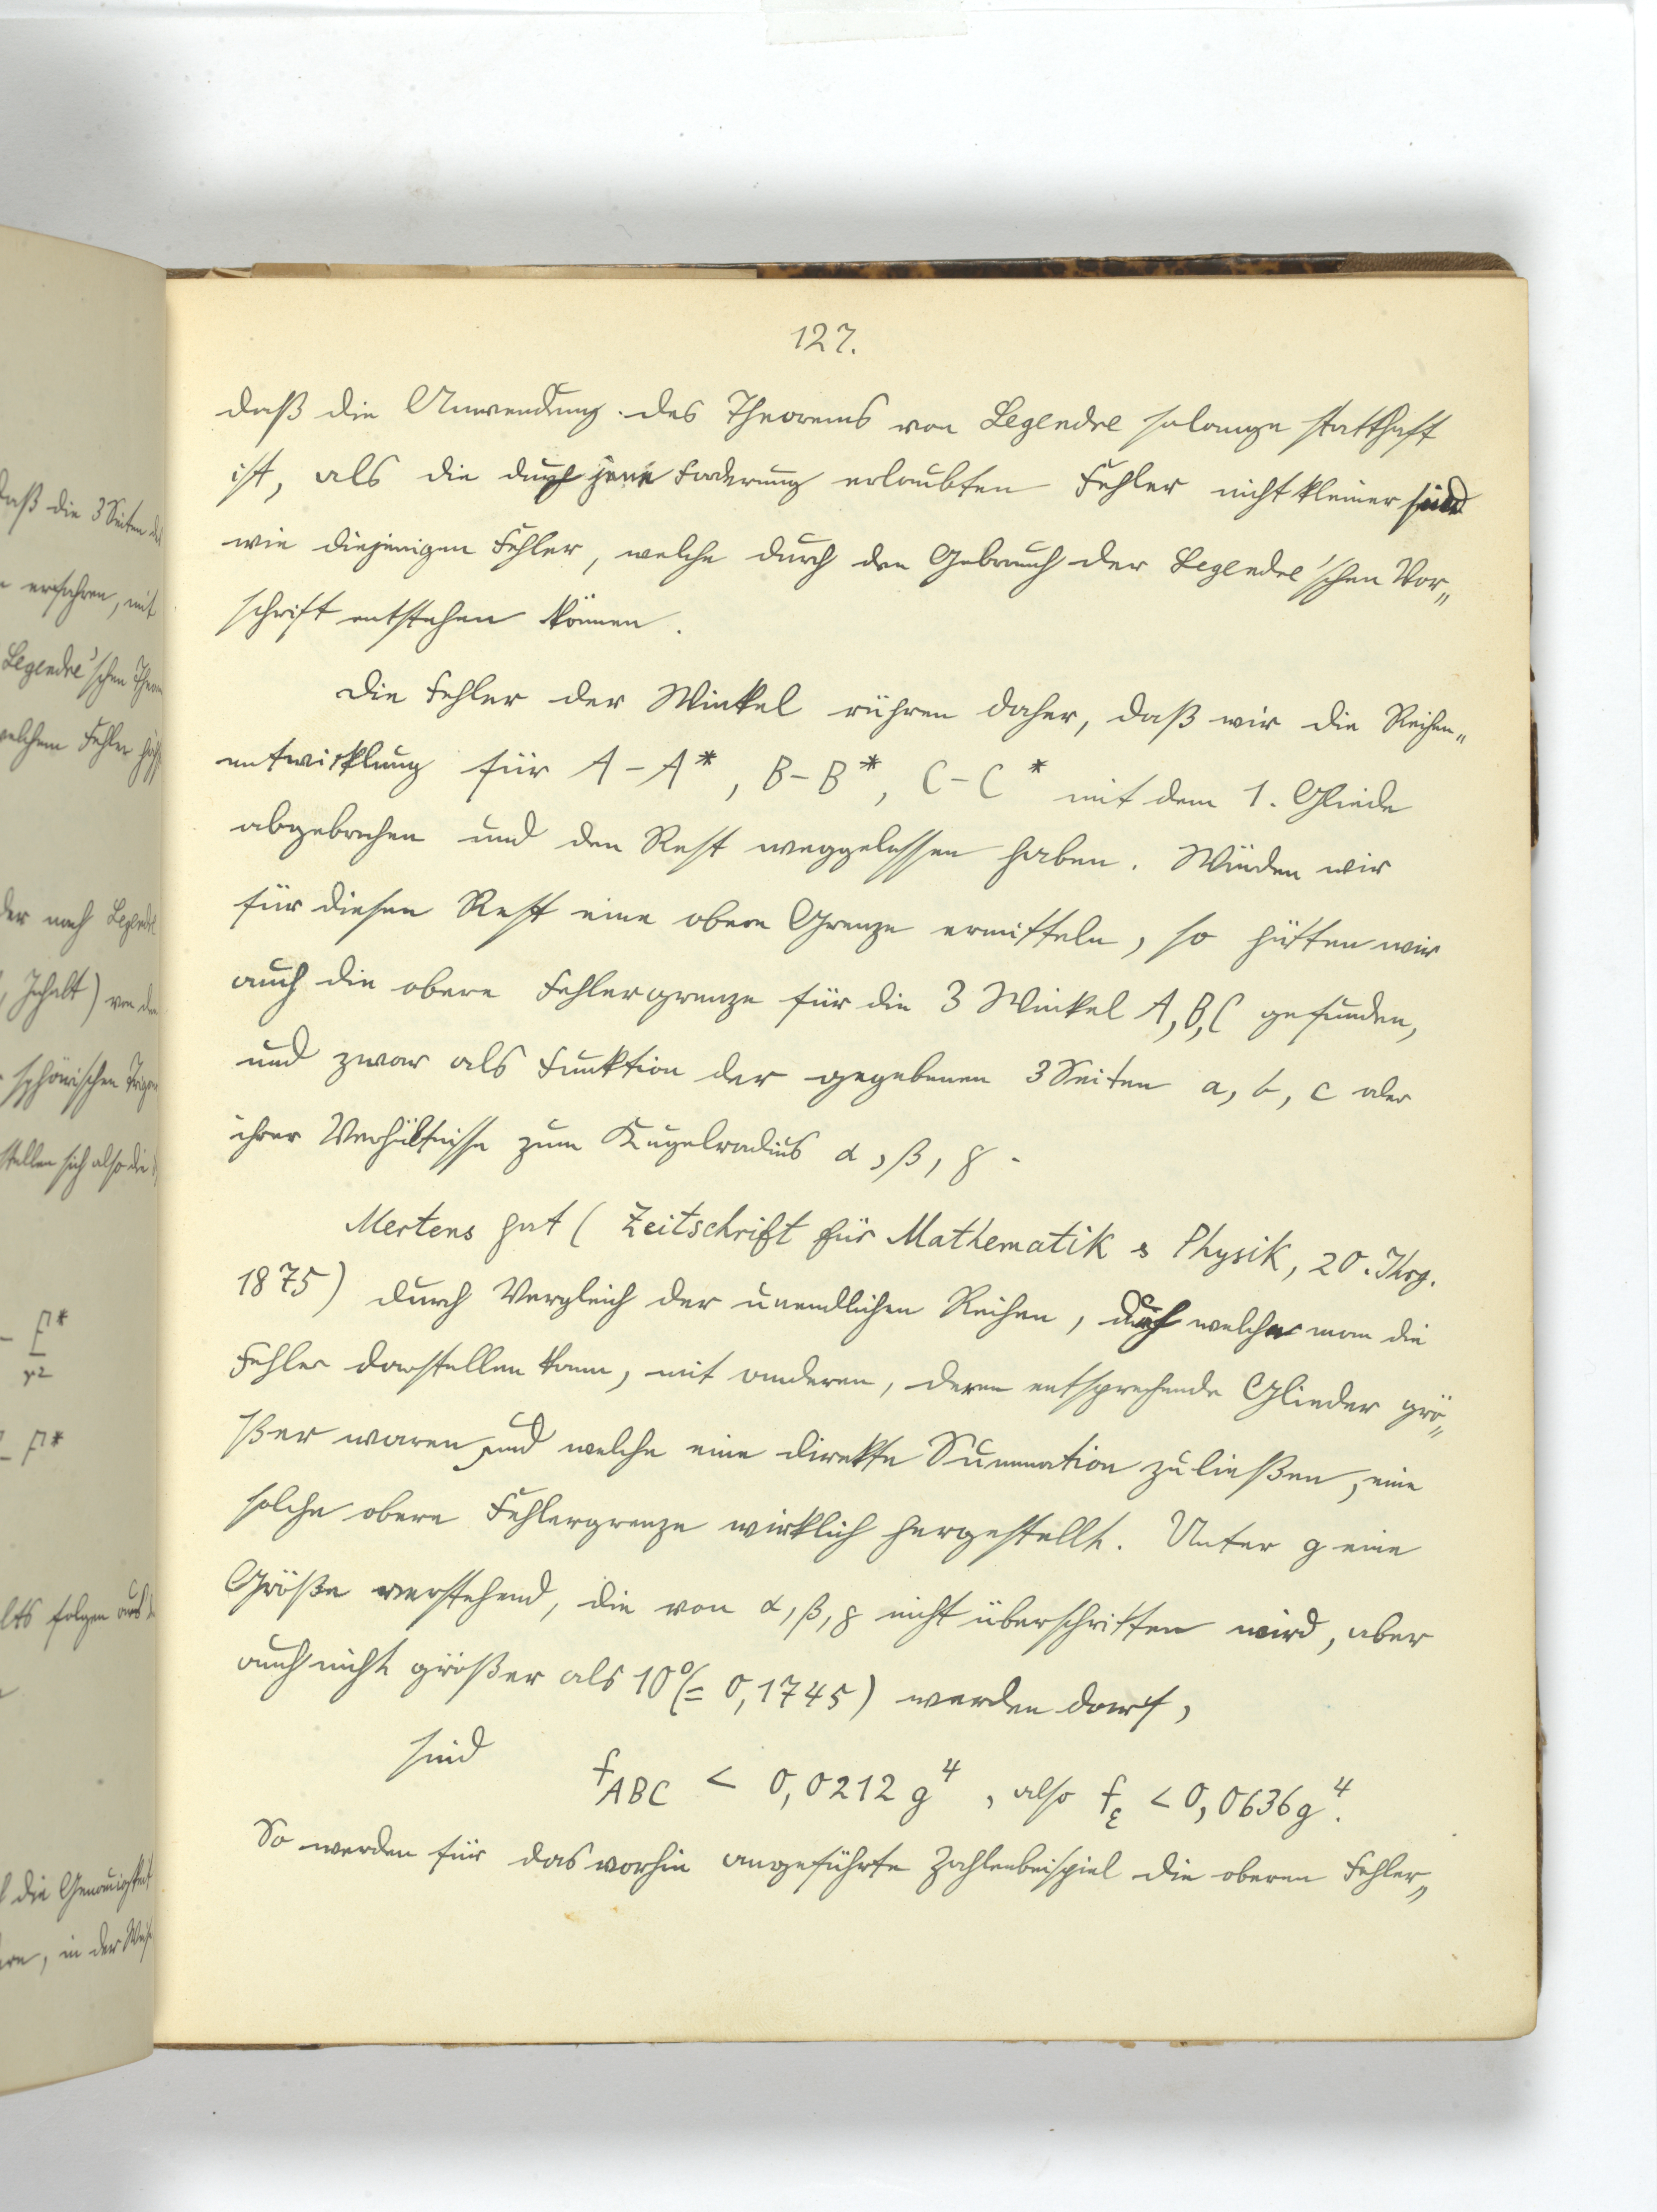 127.
daß die Anwendung des Theorems von Legendre solange statthaft
ist, als die durch jene Forderung erlaubten Fehler nicht kleiner sind
wie diejenigen Fehler, welche durch den Gebrauch der Legendre'schen Vor„
schrift entstehen können.
Die Fehler der Winkel rühren daher, daß wir die Reihen„
entwicklung für A – A*, B – B*, C – C* mit dem 1. Gliede
abgebrochen und den Rest weggelassen haben. Würden wir
für diesen Rest eine obere Grenze ermitteln, so hätten wir
auch die obere Fehlergrenze für die 3 Winkel A, B, C gefunden,
und zwar als Funktion der gegebenen 3 Seiten a, b, c oder
ihrer Verhältnisse zum Kugelradius α, β, γ.
Mertens hat (Zeitschrift für Mathematik & Physik, 20. Jhrg.
1875) durch Vergleich der unendlichen Reihen, durch welche man die
Fehler darstellen kann, mit anderen, deren entsprechende Glieder grö„
ßer waren und welche eine direkte Summation zuließen, eine
solche obere Fehlergrenze wirklich hergestellt. Unter g eine
Größe verstehend, die von α, β, γ nicht überschritten wird, aber
auch nicht größer als 10° (= 0,1745) werden darf,
sind f_ABC < 0,0212 g⁴, also f_ε < 0,0636 g⁴.
So werden für das vorhin angeführte Zahlenbeispiel die oberen Fehler„
daß die 3 Seiten
erfahren, mit
Legendre'schen
welchem Fehler
der nach Legendre
Inhalt) von den
sphärischen
stellen sich also die
– F*
r²
– F*
folgen aus
die Genauigkeit
in der